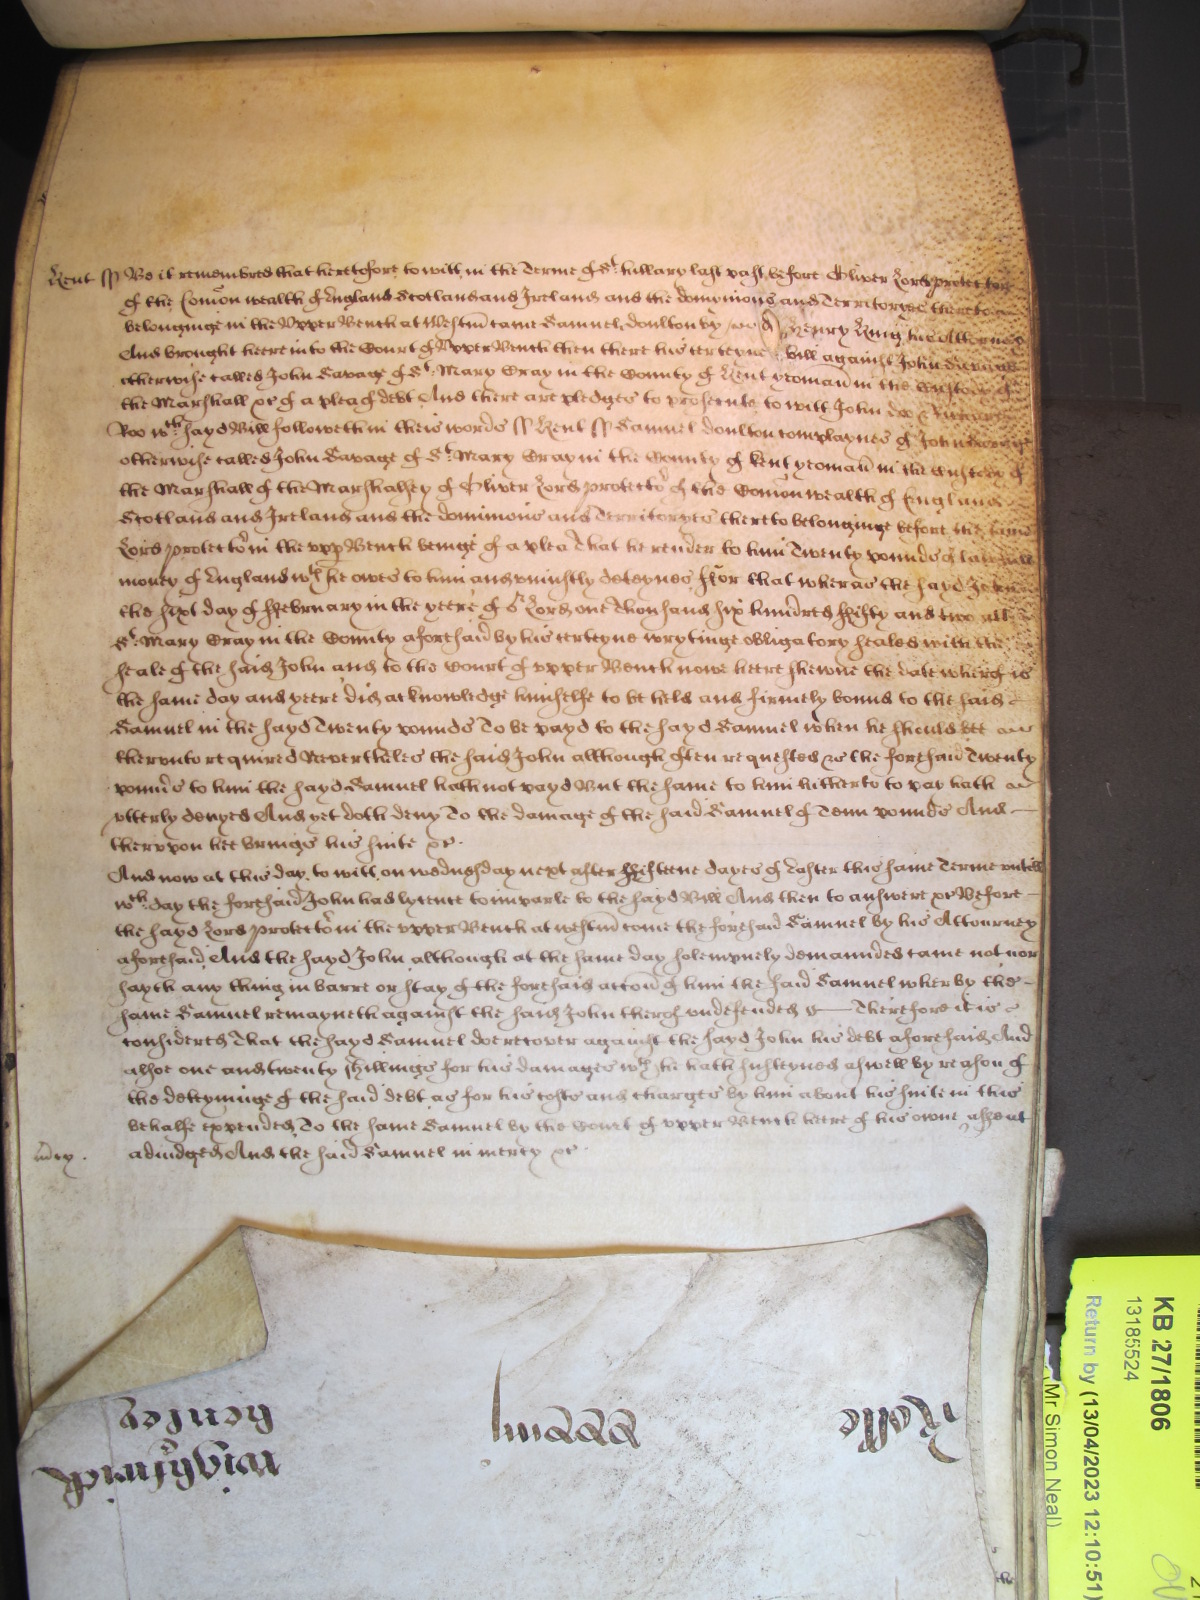 Kent ss Be it remembred that heretofore to witt in the Terme of St. hillary last past before Oliver Lord protector
of the Comon wealth of England Scotland and Ireland and the domynions and Territoryes thereto
belonginge in the Upper Bench at Westm came Samuel doulton by Henry King his Attorney
And brought heere into the Court of Upper Bench then there his certeyne bill against John Savage
otherwise called John Savage of St. Mary Cray in the County of Kent yeoman in the Custody of
the Marshall &c of a plea of debt And there are pledges to prosecute to witt John doe & Richard
Roo wch. sayd Bill followeth in theis words ss Kent ss Samuel doulton complaynes of John Savage
otherwise called John Savage of St. Mary Cray in the County of Kent yeoman in the Custody of
the Marshall of the Marshalsey of Oliver Lord protector of the Comon wealth of England
Scotland and Ireland and the dominions and Territoryes thereto belonginge before the said
Lord protector in the upp Bench beinge of a plea That he render to him Twenty pounds of lawfull
money of England wch he owes to him and uniustly deteynes ffor that wheras the sayd John
the sixt day of ffebruary in the yeere of or Lord one Thousand six hundred ffifty and two att
St. Mary Cray in the County aforesaid by his certeyne wrytinge obligatory sealed with the
seale of the said John and to the Court of upper Bench nowe heere shewne the date wherof is
the same day and yeere did acknowledge himselfe to be held and firmely bound to the said
Samuel in the sayd Twenty pounds To be payd to the sayd Samuel when he should bee
therunto required Nevertheles the said John although often requested &c the foresaid Twenty
pounds to him the sayd Samuel hath not payd But the same to him hitherto to pay hath
utterly denyed And yet doth deny To the damage of the said Samuel of Tenn pounds And
therupon hee brings his suite &c.
And now at this day to witt on wednsday next after ffifteene dayes of Easter this same Terme untill
wch. day the foresaid John had lycence to imparle to the sayd Bill And then to answere &c Before
the sayd Lord protector in the upper Bench at westm come the foresaid Samuel by his Attourney
aforesaid And the sayd John although at the same day solempnely demaunded came not nor
sayth any thing in barre or stay of the foresaid accon of him the said Samuel wherby the
same Samuel remayneth against the said John therof undefended Therefore it is
considered That the sayd Samuel doe recover against the sayd John his debt aforesaid And
alsoe one and twenty shillings for his damages wch he hath susteyned aswell by reason of
the deteyninge of the said debt as for his costs and charges by him about his suite in this
behalfe expended To the same Samuel by the Court of upper Bench heere of his owne assent
mcy. adiudged And the said Samuel in mercy &c.
Rolle
wightwick
henley
KB 27/1806
13185524
Return by (13/04/2023 12:10:51)
(Mr Simon Neal)